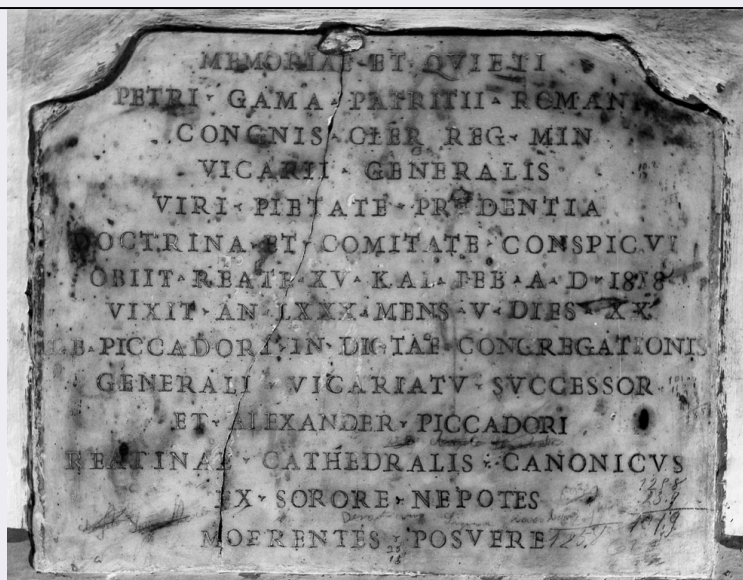 MEMORIAE · ET · QVIETI
PETRI · GAMA · PATRITII · ROMANI
CONGNIS · CLER · REG · MIN
VICARII · GENERALIS
VIRI · PIETATE · PRVDENTIA
DOCTRINA · ET · COMITATE · CONSPICVI
OBIIT · REATE · XV · KAL · FEB · A · D ·
VIXIT · AN · LXXX · MENS · V · DIES · XX
PICCADORI · IN · DICTAE · CONGREGATIONIS
GENERALI · VICARIATV · SVCCESSOR
ET · ALEXANDER · PICCADORI
REATINAE · CATHEDRALIS · CANONICVS
EX · SORORE · NEPOTES
MOERENTES · POSVERE